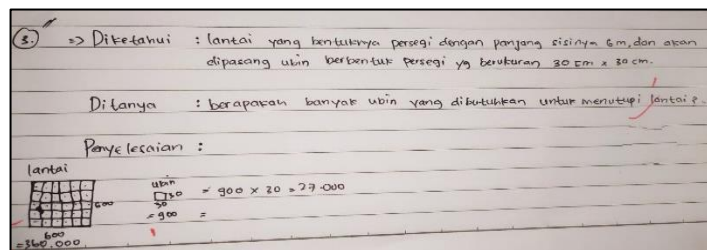 3. => Diketahui : lantai yang bentuknya persegi dengan panjang sisinya 6m, dan akan
dipasang ubin berbentuk persegi yg berukuran 30 cm x 30 cm.
Ditanya : berapakah banyak ubin yang dibutuhkan untuk menutupi lantai?
Penyelesaian :
lantai
600
600
=360.000
ubin
30
30
=900 =
= 900 x 30 = 27.000